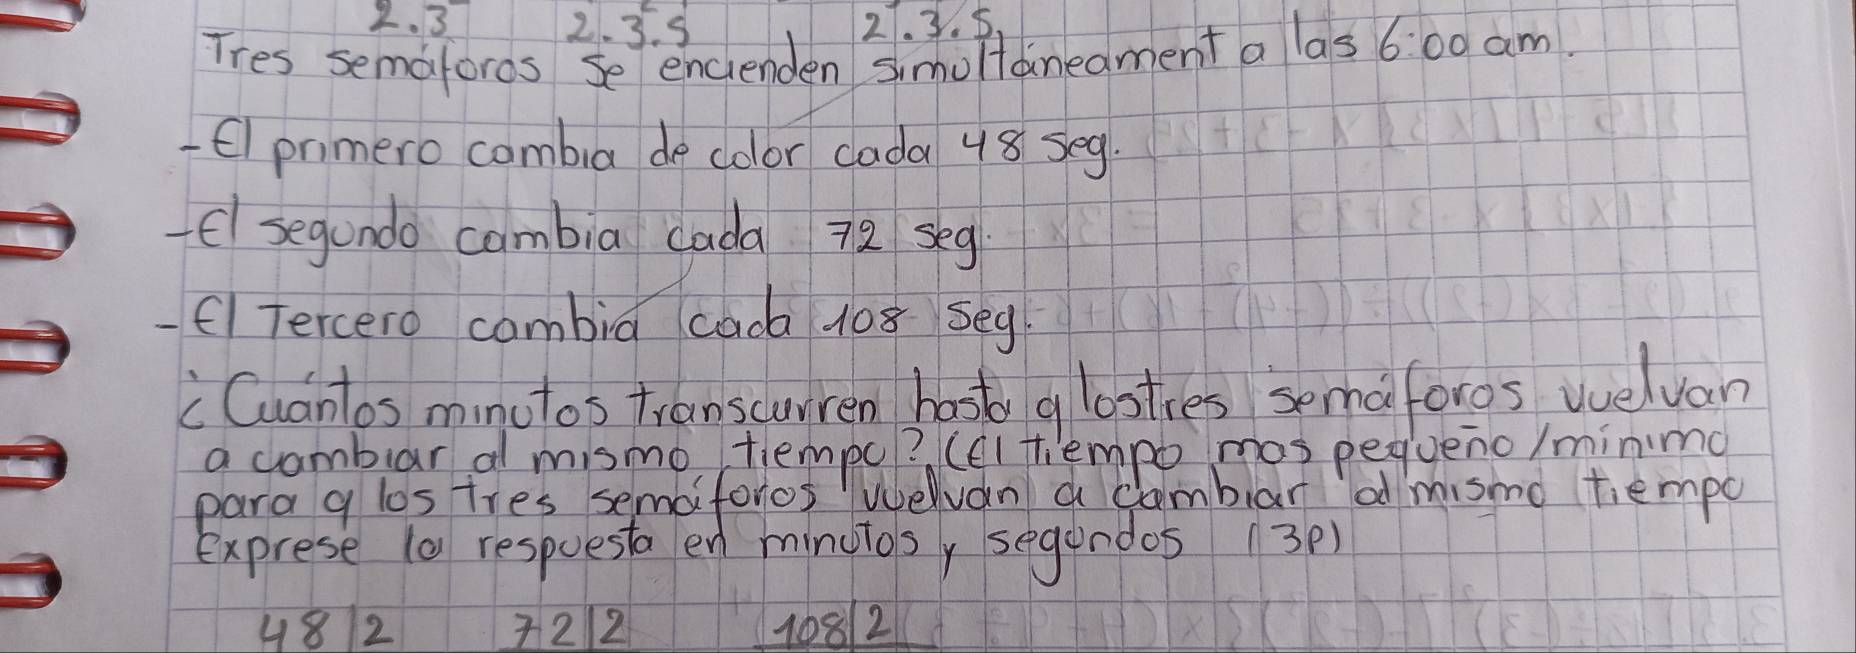 2.3 2.3.5 2.3.5
Tres semáforos se encienden simultáneament a las 6:00 am.
- El primero cambia de color cada 48 seg.
- El segundo cambia cada 72 seg.
- El Tercero cambia cada 108 seg.
¿Cuántos minutos transcurren hasta q los tres semáforos vuelvan
a cambiar al mismo tiempo? (El tiempo mas pequeño/minimo
para q los tres semáforos vuelvan a cambiar al mismo tiempo
Exprese la respuesta en minutos y segundos (3P)
48|2 72|2 108|2